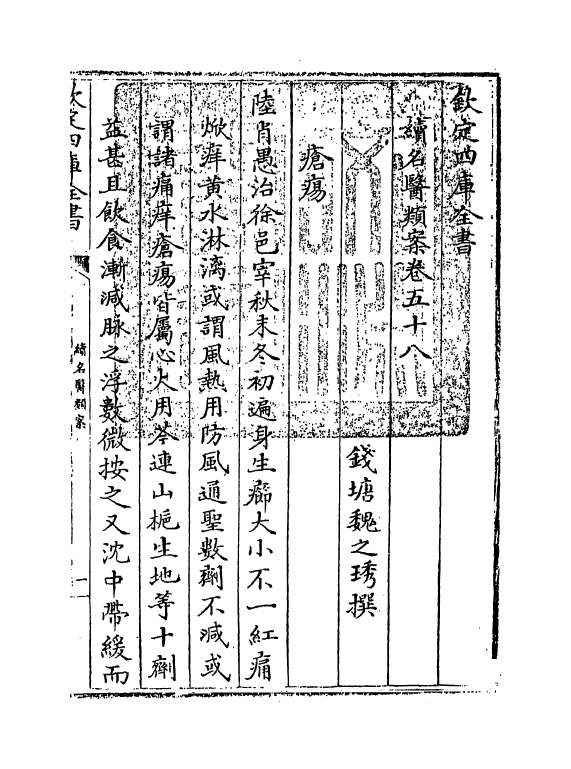 欽定四庫全書
續名醫類案卷五十八
錢塘魏之琇撰
瘡瘍
陸肖愚治徐邑宰秋末冬初遍身生癤大小不一紅痛
焮痒黄水淋漓或謂風熱用防風通聖數劑不減或
謂諸痛痒瘡瘍皆屬心火用芩連山梔生地等十劑
益甚且飲食漸減脉之浮數微按之又沈中帶緩而
欽定四庫全書
續名醫類案
一